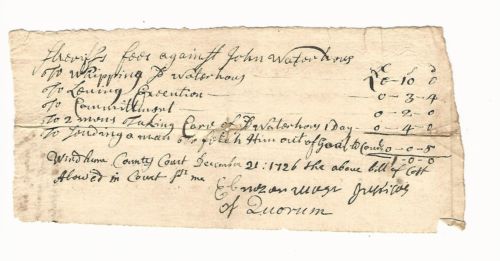 Sheriffs fees against John Waterhous
£ s d
To Whipping sd Waterhous 0-10 0
To Leving Execution — 0-3-4
To Commitment — 0-2-0
To 2 mens Taking Care of sd Waterhous 1 Day — 0-4-0
To Sending a man to fetch Him out of Goal to Court 0-0-5
1-0-0
Windham County Court December 21: 1726 the above bill of Cost
Alowed in Court pr me
Ebenezar West Justices
of Quorum